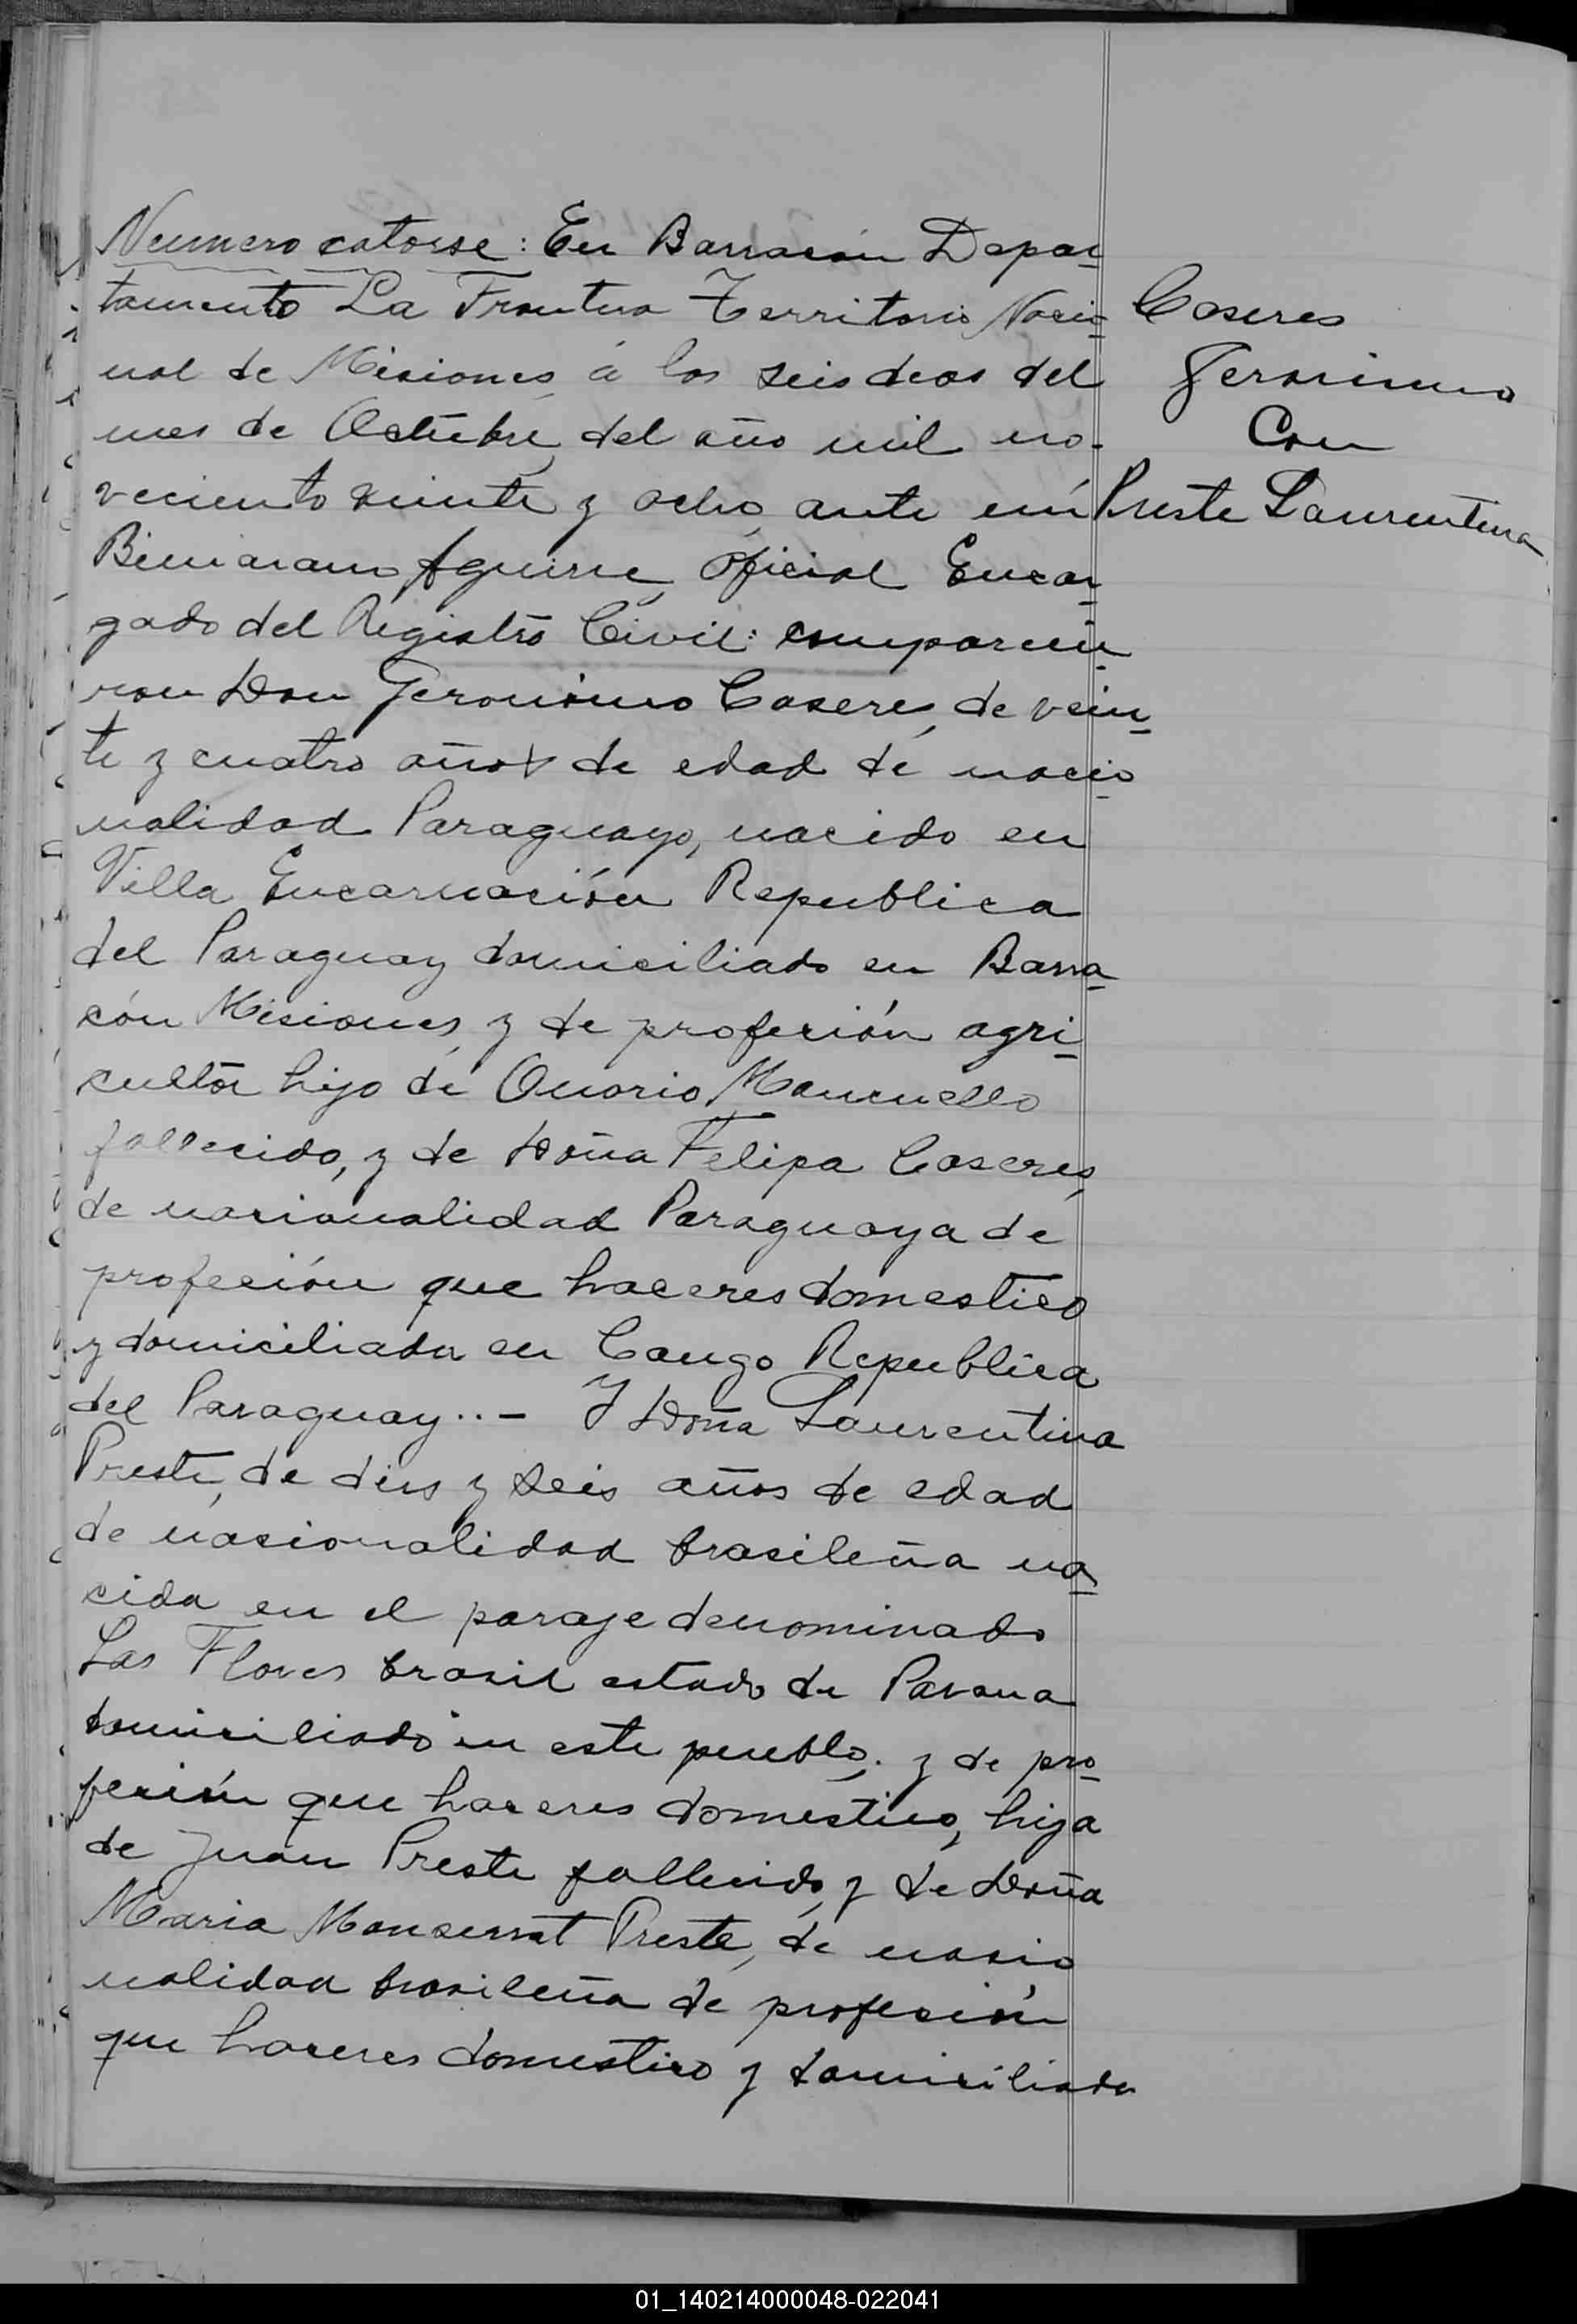 Numero catorse: En Barracón Depar-
tamento La Frontera Territorio Nacio-
nal de Misiones, á los seis dias del
mes de Octubre, del año mil no-
veciento veinte y ocho, ante mí
Aguirre, Oficial Encar-
gado del Registro Civil: comparecie-
ron Don Geronimo Caseres, de vein-
te y cuatro años de edad de nacio-
nalidad Paraguayo, nacido en
Villa Encarnación Republica
del Paraguay domiciliado en Barra-
cón Misiones, y de profesión agri-
cultor hijo de Onorio Mancuello
fallecido, y de Doña Felipa Caseres,
de nacionalidad Paraguaya de
profesión que haceres domestico
y domiciliada en Cango Republica
del Paraguay..- Y Doña Laurentina
Preste, de dies y seis años de edad
de nasionalidad brasileña na-
cida en el paraje denominado
Las Flores brasil estado de Parana
domiciliado en este pueblo; y de pro-
fesión que haceres domestico, hija
de Juan Preste fallecido, y de Doña
Maria Monserrat Preste, de nasio
nalidad brasileña de profesión
que haceres domestico y domiciliada
Caseres
Geronimo
Con
Preste Laurentina
01_140214000048-022041